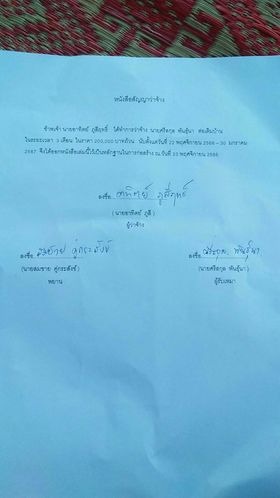 หนังสือสัญญาว่าจ้าง
ข้าพเจ้า นายอาทิตย์ ภูสีฤทธิ์ ได้ทำการว่าจ้าง นายศรีอกุล พันธุ์นา ต่อเติมบ้าน
ในระยะเวลา 3 เดือน ในราคา 200,000 บาทถ้วน นับตั้งแต่วันที่ 22 พฤศจิกายน 2566 – 30 มกราคม
2567 จึงได้ออกหนังสือเล่มนี้ไว้เป็นหลักฐานในการก่อสร้าง ณ วันที่ 20 พฤศจิกายน 2566
ลงชื่อ อาทิตย์ ภูสีฤทธิ์
( นายอาทิตย์ ภูสี )
ผู้ว่าจ้าง
ลงชื่อ สมชาย คู่กระสังข์
(นายสมชาย คู่กระสังข์ )
พยาน
ลงชื่อ พันธุ์นา
(นายศรีอกุล พันธุ์นา )
ผู้รับเหมา